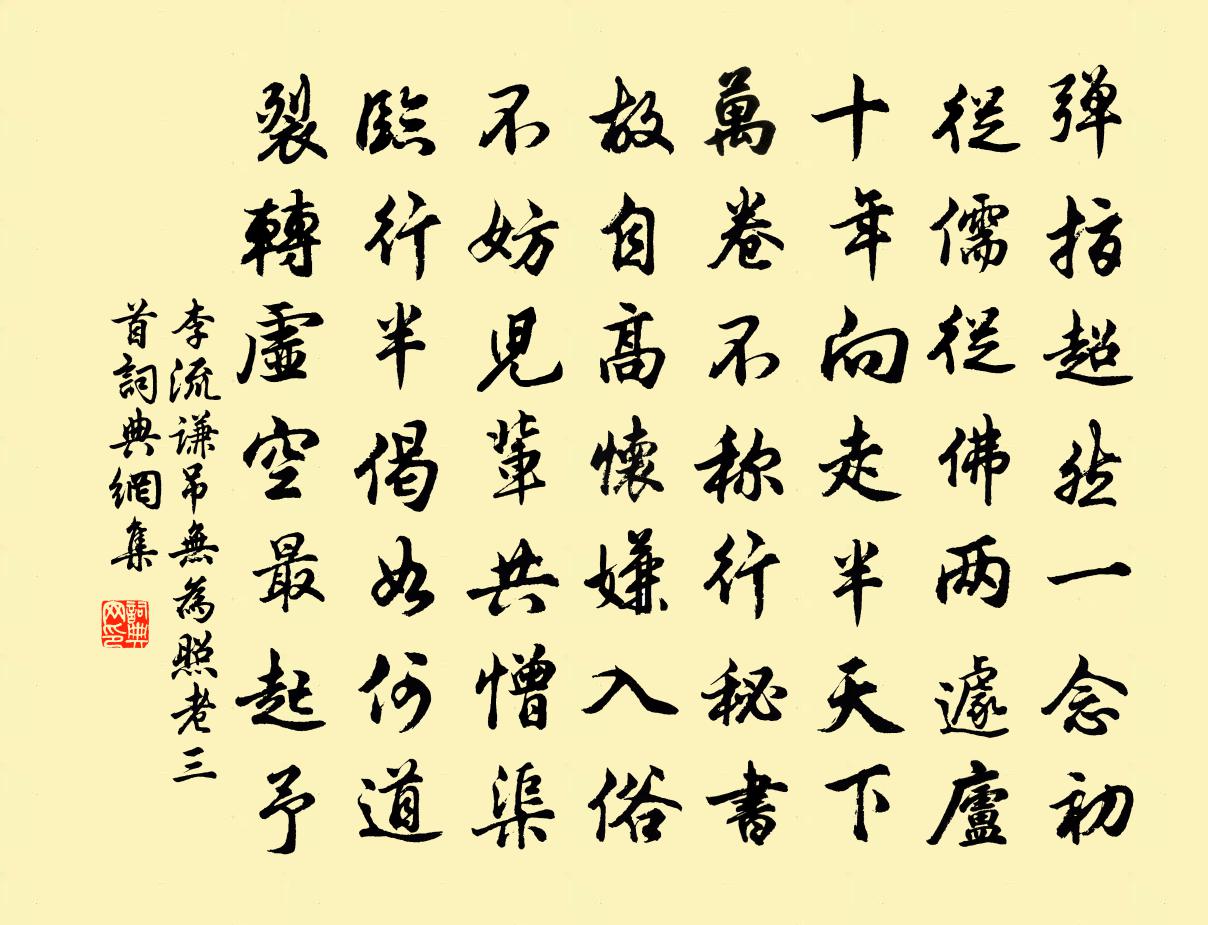 弹指超然一念初
從儒從佛两遽廬
十年向走半天下
萬卷不称行秘書
故自高懷嫌入俗
不妨児輩共憎渠
臨行半偈如何道
裂轉虛空最起予
李流谦吊無為照老三
首詞典網集
詞典网印